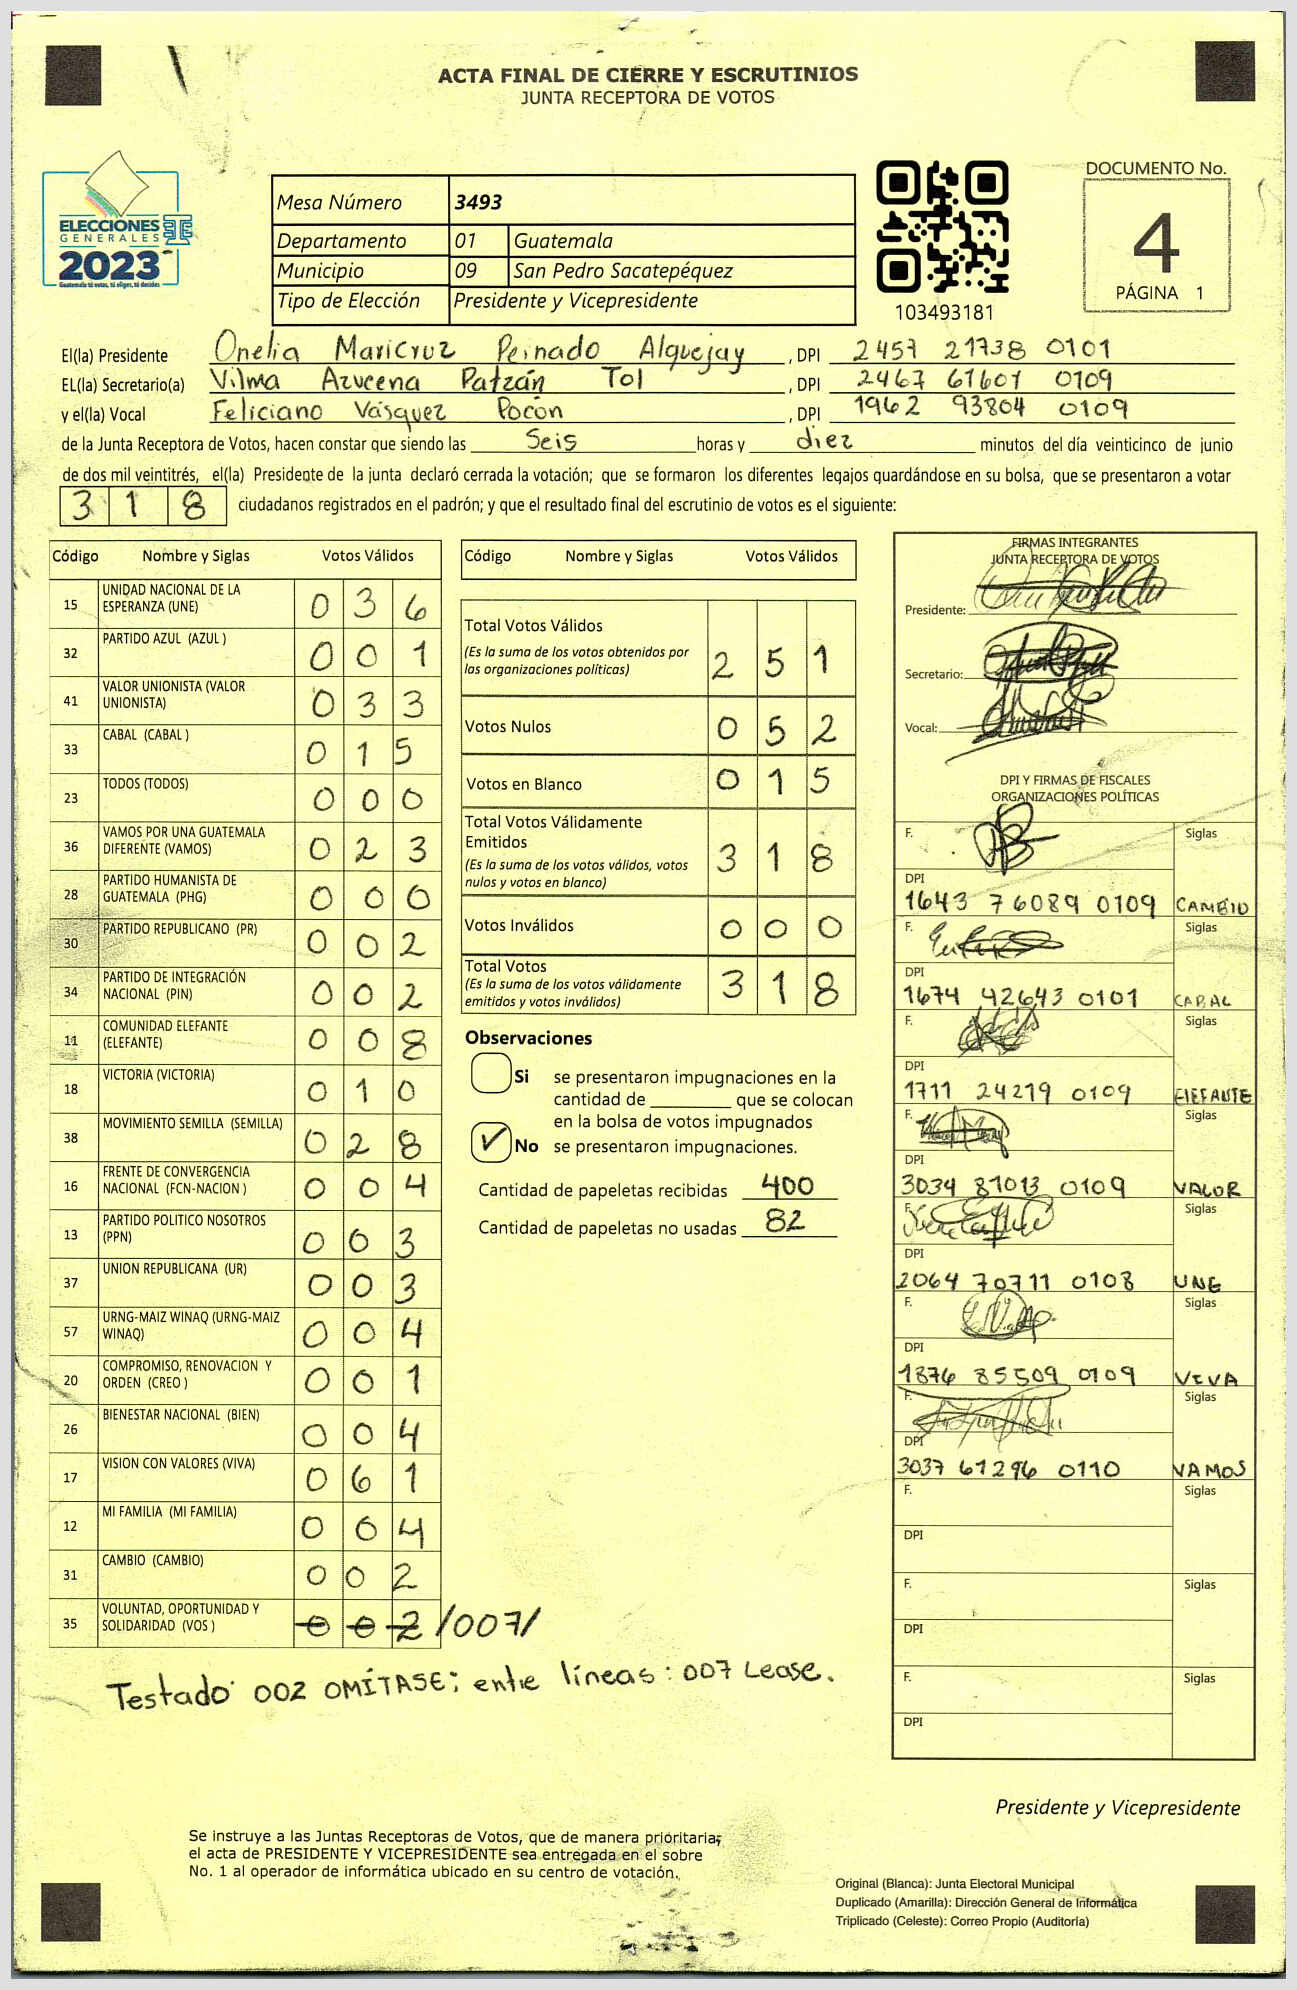 ACTA FINAL DE CIERRE Y ESCRUTINIOS
JUNTA RECEPTORA DE VOTOS
ELECCIONES
GENERALES
2023
Guatemala tú votas, tú eliges, tú decides
Mesa Número 3493
Departamento 01 Guatemala
Municipio 09 San Pedro Sacatepéquez
Tipo de Elección Presidente y Vicepresidente
103493181
DOCUMENTO No.
4
PÁGINA 1
El(la) Presidente Onelia Maricruz Peinado Alquejay , DPI 2457 21738 0101
EL(la) Secretario(a) Vilma Azucena Patzán Tol , DPI 2467 61601 0109
y el(la) Vocal Feliciano Vásquez Pocón , DPI 1962 93804 0109
de la Junta Receptora de Votos, hacen constar que siendo las Seis horas y diez minutos del día veinticinco de junio
de dos mil veintitrés, el(la) Presidente de la junta declaró cerrada la votación; que se formaron los diferentes legajos guardándose en su bolsa, que se presentaron a votar
318 ciudadanos registrados en el padrón; y que el resultado final del escrutinio de votos es el siguiente:
Código Nombre y Siglas Votos Válidos
15 UNIDAD NACIONAL DE LA ESPERANZA (UNE) 0 3 6
32 PARTIDO AZUL (AZUL ) 0 0 1
41 VALOR UNIONISTA (VALOR UNIONISTA) 0 3 3
33 CABAL (CABAL ) 0 1 5
23 TODOS (TODOS) 0 0 0
36 VAMOS POR UNA GUATEMALA DIFERENTE (VAMOS) 0 2 3
28 PARTIDO HUMANISTA DE GUATEMALA (PHG) 0 0 0
30 PARTIDO REPUBLICANO (PR) 0 0 2
34 PARTIDO DE INTEGRACIÓN NACIONAL (PIN) 0 0 2
11 COMUNIDAD ELEFANTE (ELEFANTE) 0 0 8
18 VICTORIA (VICTORIA) 0 1 0
38 MOVIMIENTO SEMILLA (SEMILLA) 0 2 8
16 FRENTE DE CONVERGENCIA NACIONAL (FCN-NACION ) 0 0 4
13 PARTIDO POLITICO NOSOTROS (PPN) 0 0 3
37 UNION REPUBLICANA (UR) 0 0 3
57 URNG-MAIZ WINAQ (URNG-MAIZ WINAQ) 0 0 4
20 COMPROMISO, RENOVACION Y ORDEN (CREO ) 0 0 1
26 BIENESTAR NACIONAL (BIEN) 0 0 4
17 VISION CON VALORES (VIVA) 0 6 1
12 MI FAMILIA (MI FAMILIA) 0 0 4
31 CAMBIO (CAMBIO) 0 0 2
35 VOLUNTAD, OPORTUNIDAD Y SOLIDARIDAD (VOS ) 0 0 2 /007/
Testado 002 OMÍTASE; entre líneas: 007 Lease.
Código Nombre y Siglas Votos Válidos
Total Votos Válidos
(Es la suma de los votos obtenidos por
las organizaciones políticas) 2 5 1
Votos Nulos 0 5 2
Votos en Blanco 0 1 5
Total Votos Válidamente
Emitidos
(Es la suma de los votos válidos, votos
nulos y votos en blanco) 3 1 8
Votos Inválidos 0 0 0
Total Votos
(Es la suma de los votos válidamente
emitidos y votos inválidos) 3 1 8
Observaciones
Si se presentaron impugnaciones en la
cantidad de ________ que se colocan
en la bolsa de votos impugnados
No se presentaron impugnaciones.
Cantidad de papeletas recibidas 400
Cantidad de papeletas no usadas 82
FIRMAS INTEGRANTES
JUNTA RECEPTORA DE VOTOS
Presidente:
Secretario:
Vocal:
DPI Y FIRMAS DE FISCALES
ORGANIZACIONES POLÍTICAS
F. Siglas
DPI
1643 76089 0109 CAMBIO
F. Siglas
DPI
1674 42643 0101 CABAL
F. Siglas
DPI
1711 24219 0109 ElEFANTE
F. Siglas
DPI
3034 81013 0109 VALOR
F. Siglas
DPI
2064 70711 0108 UNE
F. Siglas
DPI
1876 85509 0109 VIVA
F. Siglas
DPI
3037 61296 0110 VAMOS
F. Siglas
DPI
F. Siglas
DPI
F. Siglas
DPI
Presidente y Vicepresidente
Se instruye a las Juntas Receptoras de Votos, que de manera prioritaria,
el acta de PRESIDENTE Y VICEPRESIDENTE sea entregada en el sobre
No. 1 al operador de informática ubicado en su centro de votación.
Original (Blanca): Junta Electoral Municipal
Duplicado (Amarilla): Dirección General de Informática
Triplicado (Celeste): Correo Propio (Auditoría)